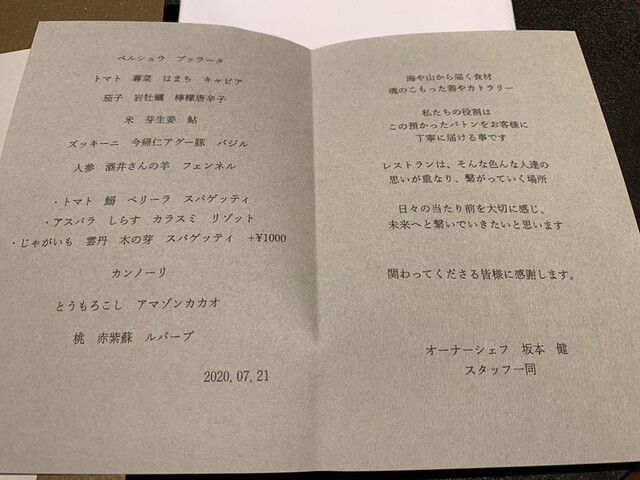 ペルシュウ ブッラータ
トマト 蓴菜 はまち キャビア
茄子 岩牡蠣 檸檬唐辛子
米 芽生姜 鮎
ズッキーニ 今帰仁アグー豚 バジル
人参 酒井さんの羊 フェンネル
・トマト 鰯 ベリーラ スパゲッティ
・アスパラ しらす カラスミ リゾット
・じゃがいも 雲丹 木の芽 スパゲッティ +¥1000
カンノーリ
とうもろこし アマゾンカカオ
桃 赤紫蘇 ルバーブ
2020,07,21
海や山から届く食材
魂のこもった器やカトラリー
私たちの役割は
この預かったバトンをお客様に
丁寧に届ける事です
レストランは、そんな色んな人達の
思いが重なり、繋がっていく場所
日々の当たり前を大切に感じ、
未来へと繋いでいきたいと思います
関わってくださる皆様に感謝します。
オーナーシェフ 坂本 健
スタッフ一同